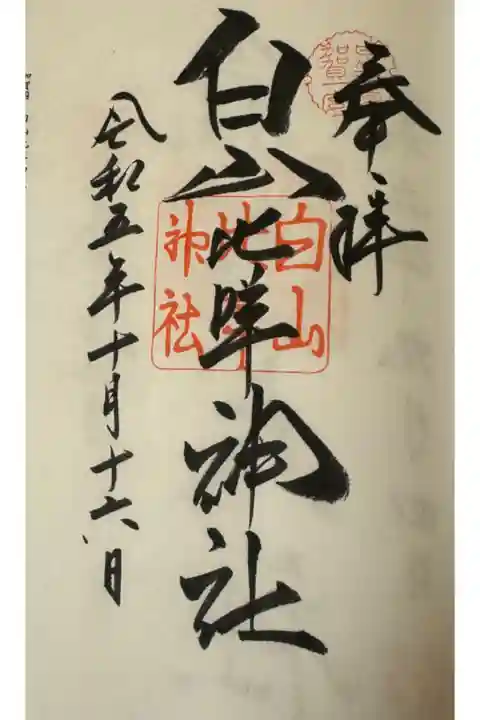 奉拝
白山比咩神社
白山
比咩
神社
令和五年十月十六日